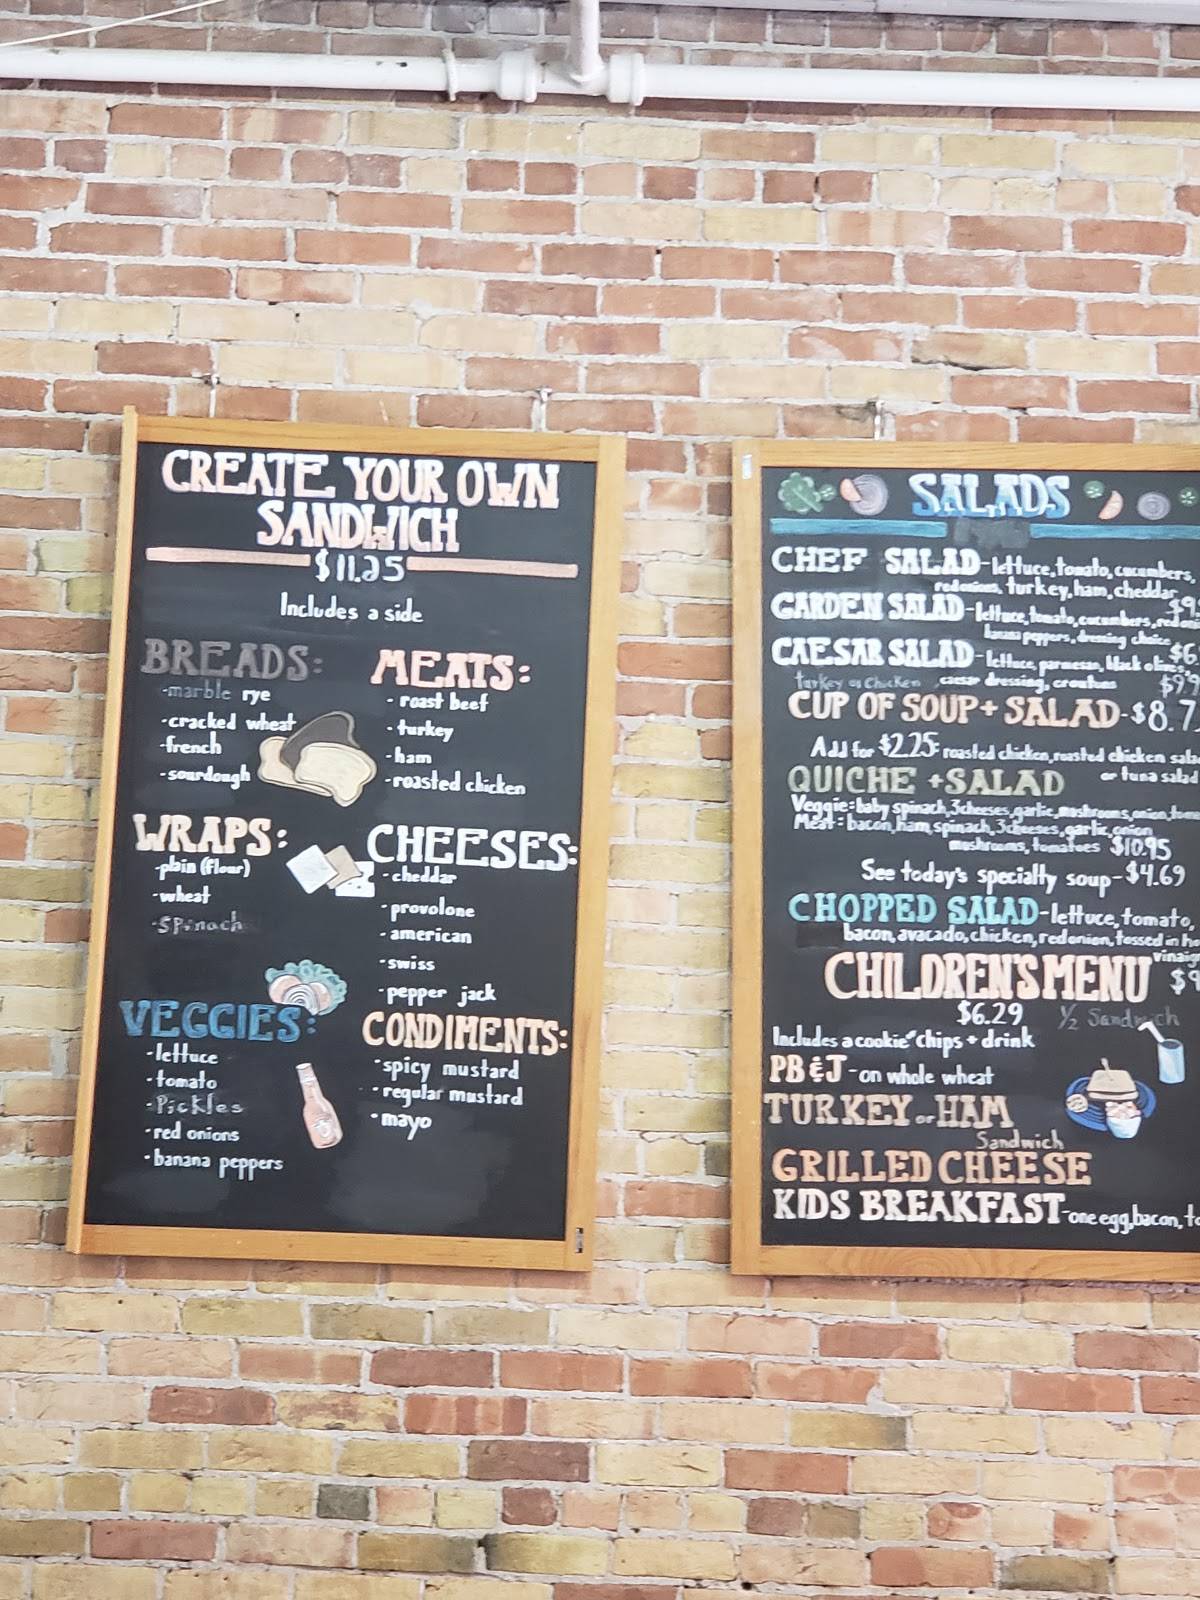 CREATE YOUR OWN
SANDWICH
$11.25
Includes a side
BREADS:
-marble rye
-cracked wheat
-french
-sourdough
MEATS:
- roast beef
- turkey
- ham
-roasted chicken
WRAPS:
-plain (flour)
-wheat
-Spinach
CHEESES:
- cheddar
- provolone
- american
- swiss
- pepper jack
VEGGIES:
-lettuce
-tomato
-Pickles
-red onions
-banana peppers
CONDIMENTS:
-spicy mustard
-regular mustard
-mayo
SALADS
CHEF SALAD-lettuce, tomato, cucumbers,
red onions, turkey, ham, cheddar
GARDEN SALAD-lettuce, tomato, cucumbers, red
banana peppers, dressing choice
CAESAR SALAD-lettuce, parmesan, black olives,
turkey or Chicken, caesar dressing, croutons
CUP OF SOUP + SALAD-$8.7
Add for $2.25: roasted chicken, roasted chicken
or tuna salad
QUICHE + SALAD
Veggie: baby spinach, 3 cheeses, garlic, mushrooms, onion,
Meat: bacon, ham, spinach, 3 cheeses, garlic, onion
mushrooms, tomatoes $10.95
See today's specialty soup-$4.69
CHOPPED SALAD-lettuce, tomato,
bacon, avacado, chicken, red onion, tossed in
CHILDREN'S MENU
$6.29 1/2 Sandwich
Includes a cookie chips + drink
PB & J-on whole wheat
TURKEY or HAM
Sandwich
GRILLED CHEESE
KIDS BREAKFAST-one egg, bacon,